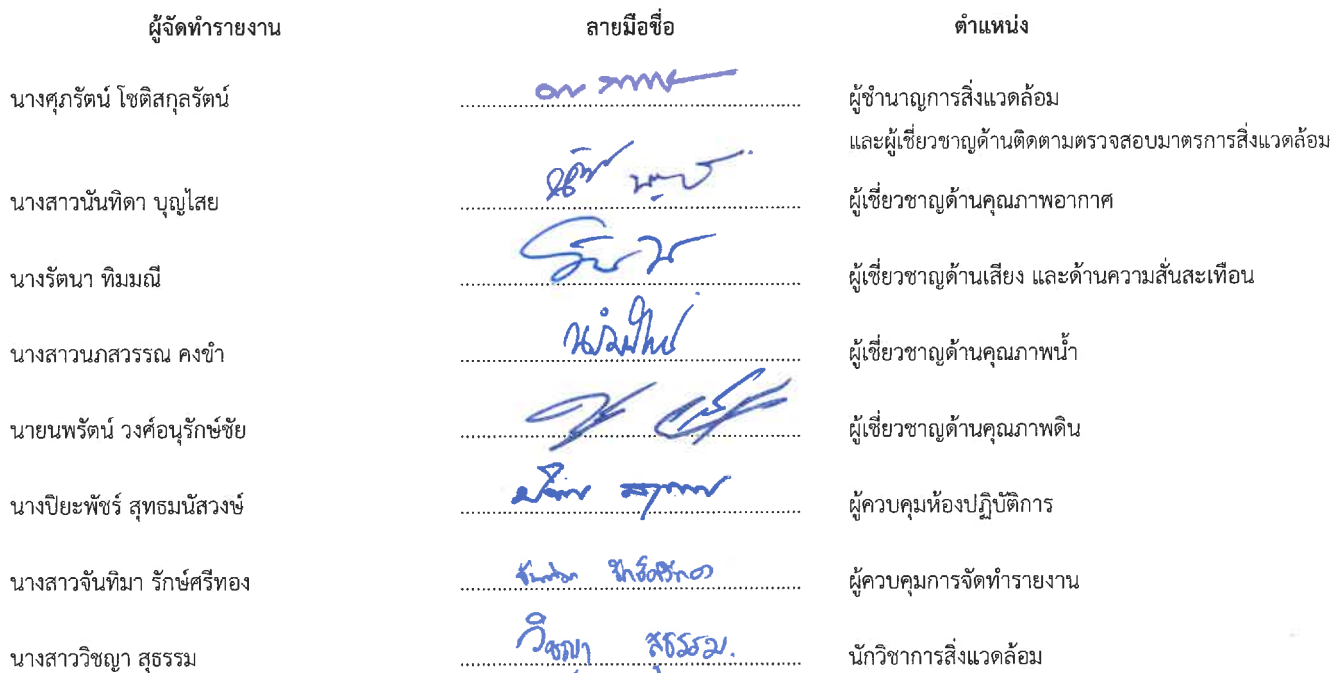 ผู้จัดทำรายงาน ลายมือชื่อ ตำแหน่ง
นางศุภรัตน์ โชติสกุลรัตน์ ผู้ชำนาญการสิ่งแวดล้อม
และผู้เชี่ยวชาญด้านติดตามตรวจสอบมาตรการสิ่งแวดล้อม
นางสาวนันทิดา บุญไสย ผู้เชี่ยวชาญด้านคุณภาพอากาศ
นางรัตนา ทิมมณี ผู้เชี่ยวชาญด้านเสียง และด้านความสั่นสะเทือน
นางสาวนภสวรรณ คงขำ ผู้เชี่ยวชาญด้านคุณภาพน้ำ
นายนพรัตน์ วงศ์อนุรักษ์ชัย ผู้เชี่ยวชาญด้านคุณภาพดิน
นางปิยะพัชร์ สุทธมนัสวงษ์ ผู้ควบคุมห้องปฏิบัติการ
นางสาวจันทิมา รักษ์ศรีทอง จันทิมา รักษ์ศรีทอง ผู้ควบคุมการจัดทำรายงาน
นางสาววิชญา สุธรรม วิชญา สุธรรม. นักวิชาการสิ่งแวดล้อม